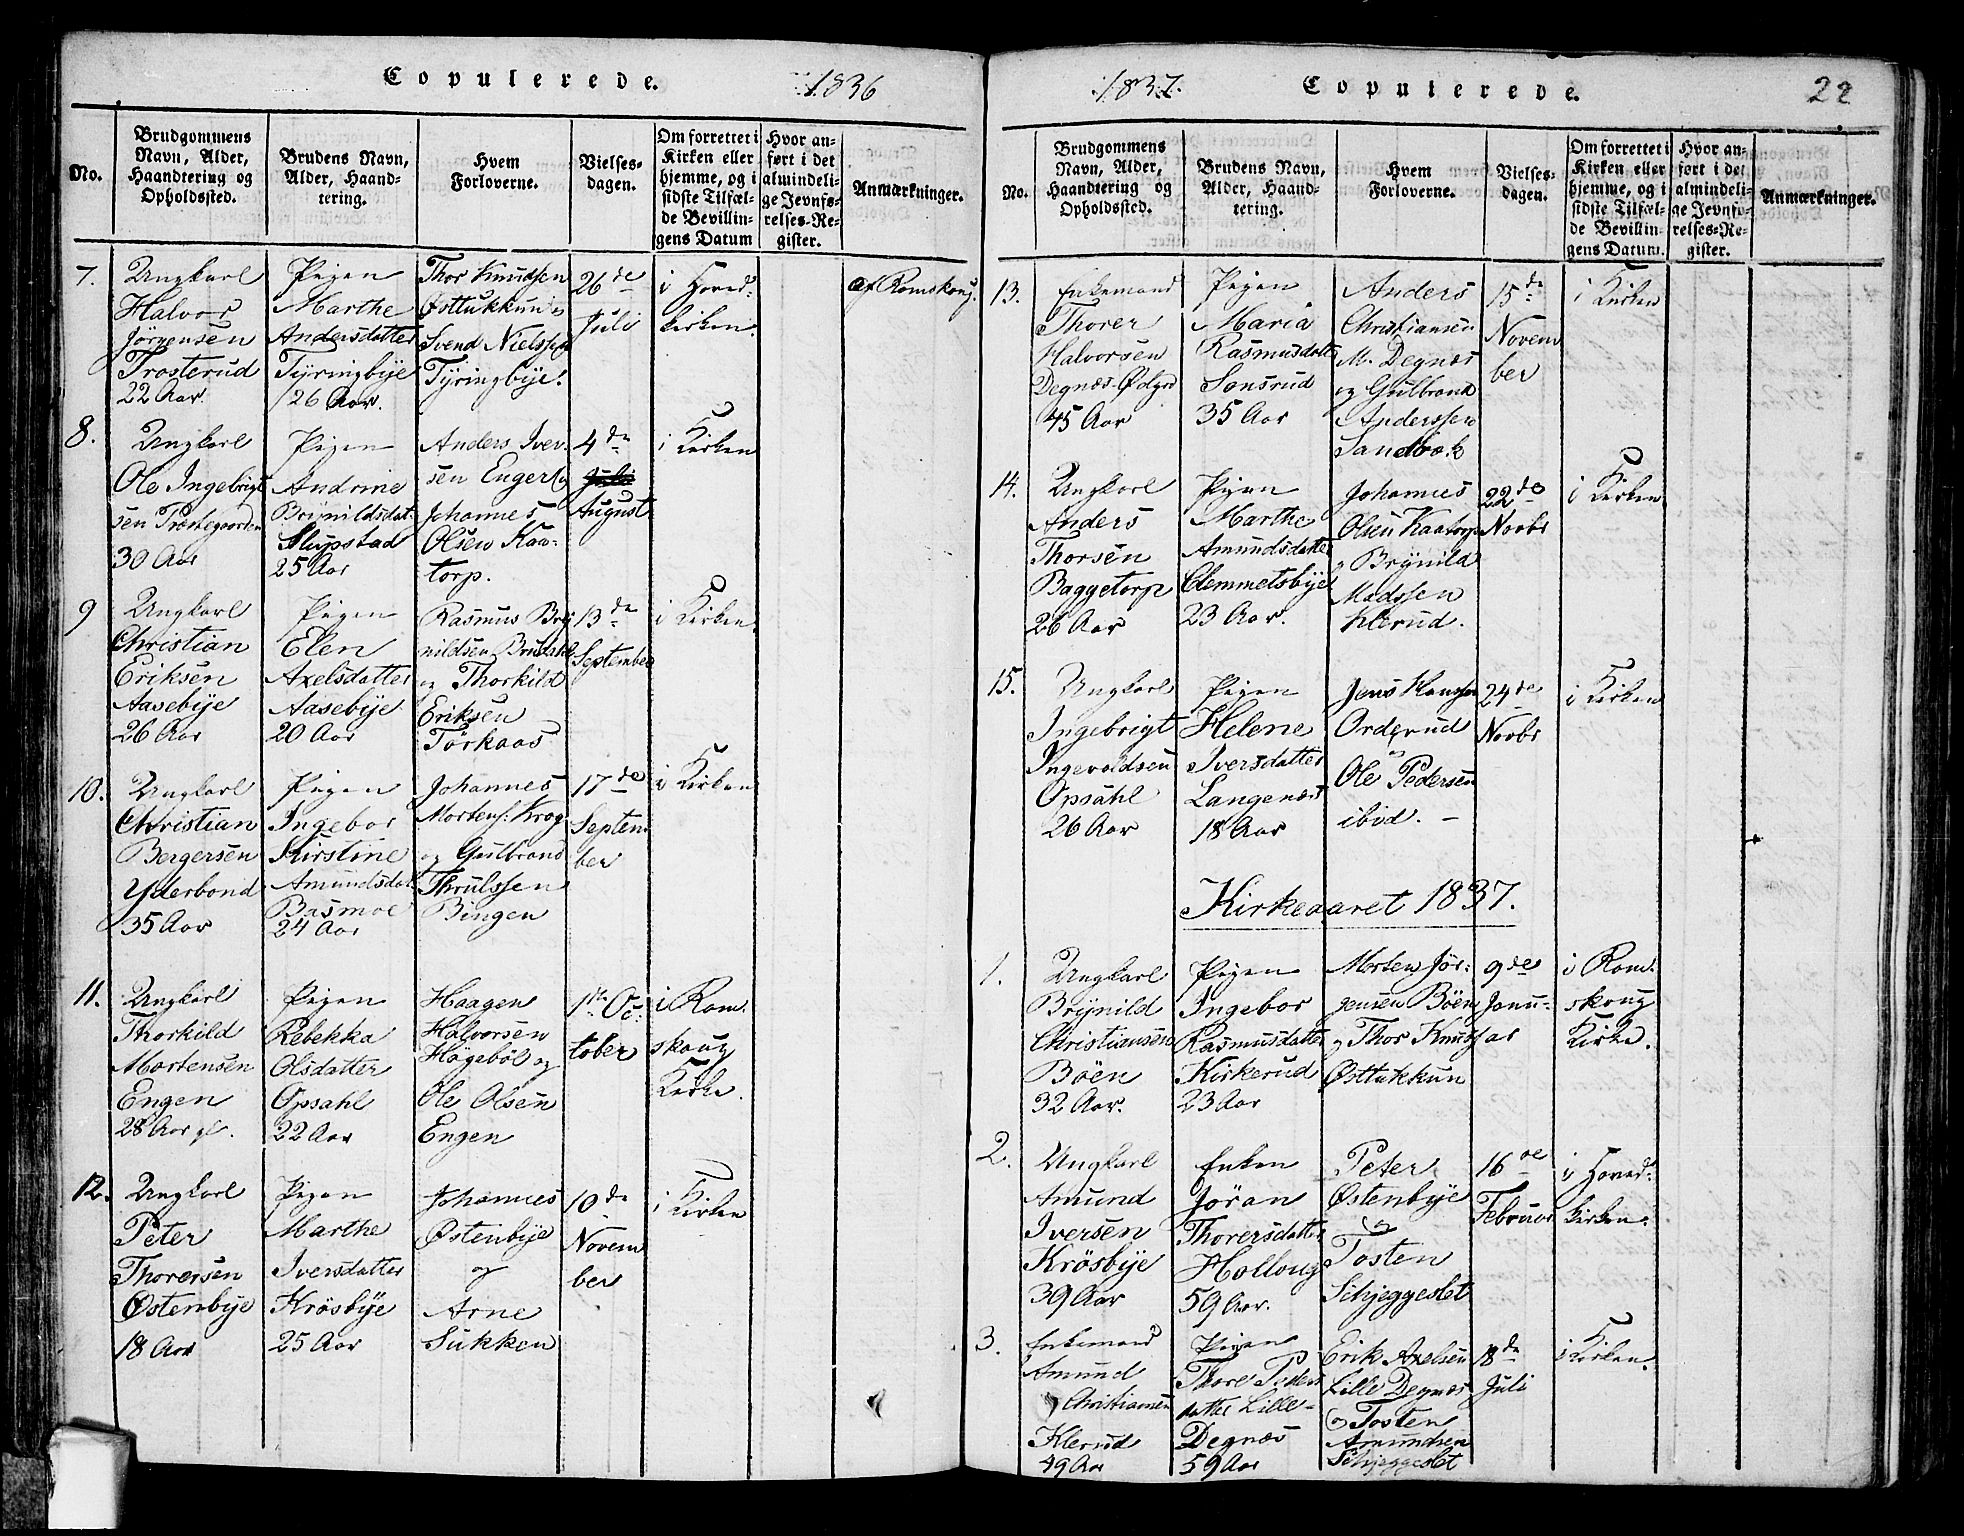 Copulerede. 1836
No.
Brudgommens
Navn, Alder,
Haandtering og
Opholdssted.
Brudens Navn,
Alder, Haand-
tering.
Hvem
Forloverne.
Vielses-
dagen.
Om forrettet i
Kirken eller
hjemme, og i
sidste Tilfæl-
de Bevillin-
gens Datum
Hvor an-
ført i det
almindeli-
ge Jevnfø-
relses-Re-
gister.
Anmærkninger.
7.
Ungkarl
Halvor
Jörgensen
Trosterud
22 Aar.
Pigen
Marthe
Andersdatter
Tÿringbÿe
26 Aar.
Thor Knudsen
Østtukkun
Svend Nielssen
Tÿringbÿe!
26de
Juli
i Hoved-
kirken.
af Romskoug.
8.
Ungkarl
Ole Ingebrigt
sen Præstegaarden
30 Aar
Pigen
Andrine
Brÿnildsdat.
Slupstad
25 Aar
Anders Iver-
sen Enger og
Johannes
Olsen Kaa-
torp.
4de
Juli
August
i Kirken
9
Ungkarl
Christian
Eriksen
Aasebÿe
26 Aar
Pigen
Elen
Axelsdatter
Aasebÿe
20 Aar
Rasmus Brÿ
nildsen
og Thorkild
Eriksen
Törkaas
13de
September
i Kirken.
10.
Ungkarl
Christian
Bergersen
Yderbond
35 Aar
Pigen
Ingebor
Kirstine
Amundsdat
Basmoe
24 Aar
Johannes
Mortens: Krog
og Gulbrand
Thrulssen
Bingen
17de
Septem
ber
i Kirken
11.
Ungkarl
Thorkild
Mortensen
Engen
28 Aar gl.
Pigen
Rebekka
Olsdatter
Opsahl
22 Aar
Haagen
Halvorsen
Högeböl og
Ole Olsen
Engen
1ste Oc-
tober
i Rom-
skoug
Kirke.
12.
Ungkarl
Peter
Thorersen
Østenbÿe
18 Aar
Pigen
Marthe
Iversdatter
Krösbÿe
25 Aar
Johannes
Østenbÿe
og
Arne
Sukken
10de
Novem
ber
i Kirken
1837. Copulerede. 22
No.
Brudgommens
Navn, Alder,
Haandtering og
Opholdssted.
Brudens Navn,
Alder, Haand-
tering.
Hvem
Forloverne.
Vielses-
dagen.
Om forrettet i
Kirken eller
hjemme, og i
sidste Tilfæl-
de Bevillin-
gens Datum.
Hvor an-
ført i det
almindeli-
ge Jevnfø-
relses-Re-
gister.
Anmærkninger.
13.
Enkemand
Thorer
Halvorsen
Degnæs-Ødgrd
45 Aar
Pigen
Maria
Rasmusdatter
Sonsrud
35 Aar
Anders
Christiansen
M. Degnæs
og Gulbrand
Anderssen
Sandbæk
15de
Novem
ber
i Kirken
14.
Ungkarl
Anders
Thorsen
Baggetorp
26 Aar
Pigen
Marthe
Amundsdatter
Clemmetsbÿe
23 Aar.
Johannes
Olsen Kaatorp
og Brÿnild
Madssen
Klerud.
22de
Novbr
i Kirken
15.
Ungkarl
Ingebrigt
Ingevoldsen
Opsahl
26 Aar
Pigen
Helene
Iversdatter
Langenæs
18 Aar
Jens Hanssen
Orderud
og
Ole Pedersen
ibid. -
24de
Novbr
i Kirken
Kirkeaaret 1837.
1.
Ungkarl
Brÿnild
Christiansen
Böen
32 Aar.
Pigen
Ingebor
Rasmusdatter
Kirkerud
23 Aar
Morten Jör-
gensen Böen
og Thor Knuss
Østtukkun
9de
Janu-
ar
i Rom-
skoug
Kirke.
2.
Ungkarl
Amund
Iversen
Krösbÿe
39 Aar
Enken
Jöran
Thorersdatter
Holloug
59 Aar.
Peter
Østenbÿe
og
Tosten
Schjeggeslet
16de
Februar
i Hoved-
kirken.
3.
Enkemand
Amund
Christiansen
Klerud
49 Aar
Pigen
Thore Peders
datter Lille-
Degnæs
59 Aar
Erik Axelsen
Lille Degnæs
og Tosten
Amundsen
Schjeggeslet
18de
Juli
i Kirken.